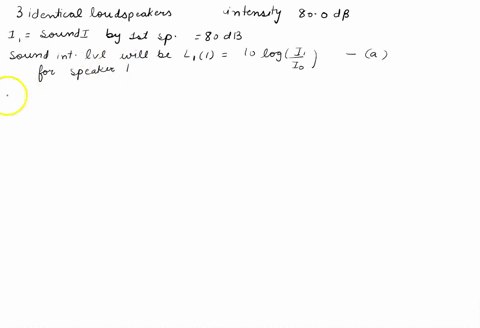 3 identical loudspeakers intensity 80.0 dB
I₁ = Sound I by 1st sp. = 80 dB
Sound int. lvl will be L₁(1) = 10 log(I₁/I₀) - (a)
for speaker 1